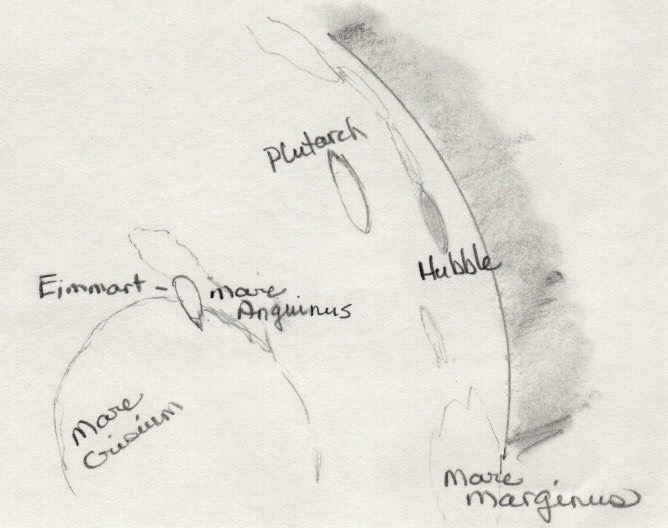 Plutarch
Hubble
Eimmart -
mare
Anguinus
Mare
Crisium
Mare
Marginus